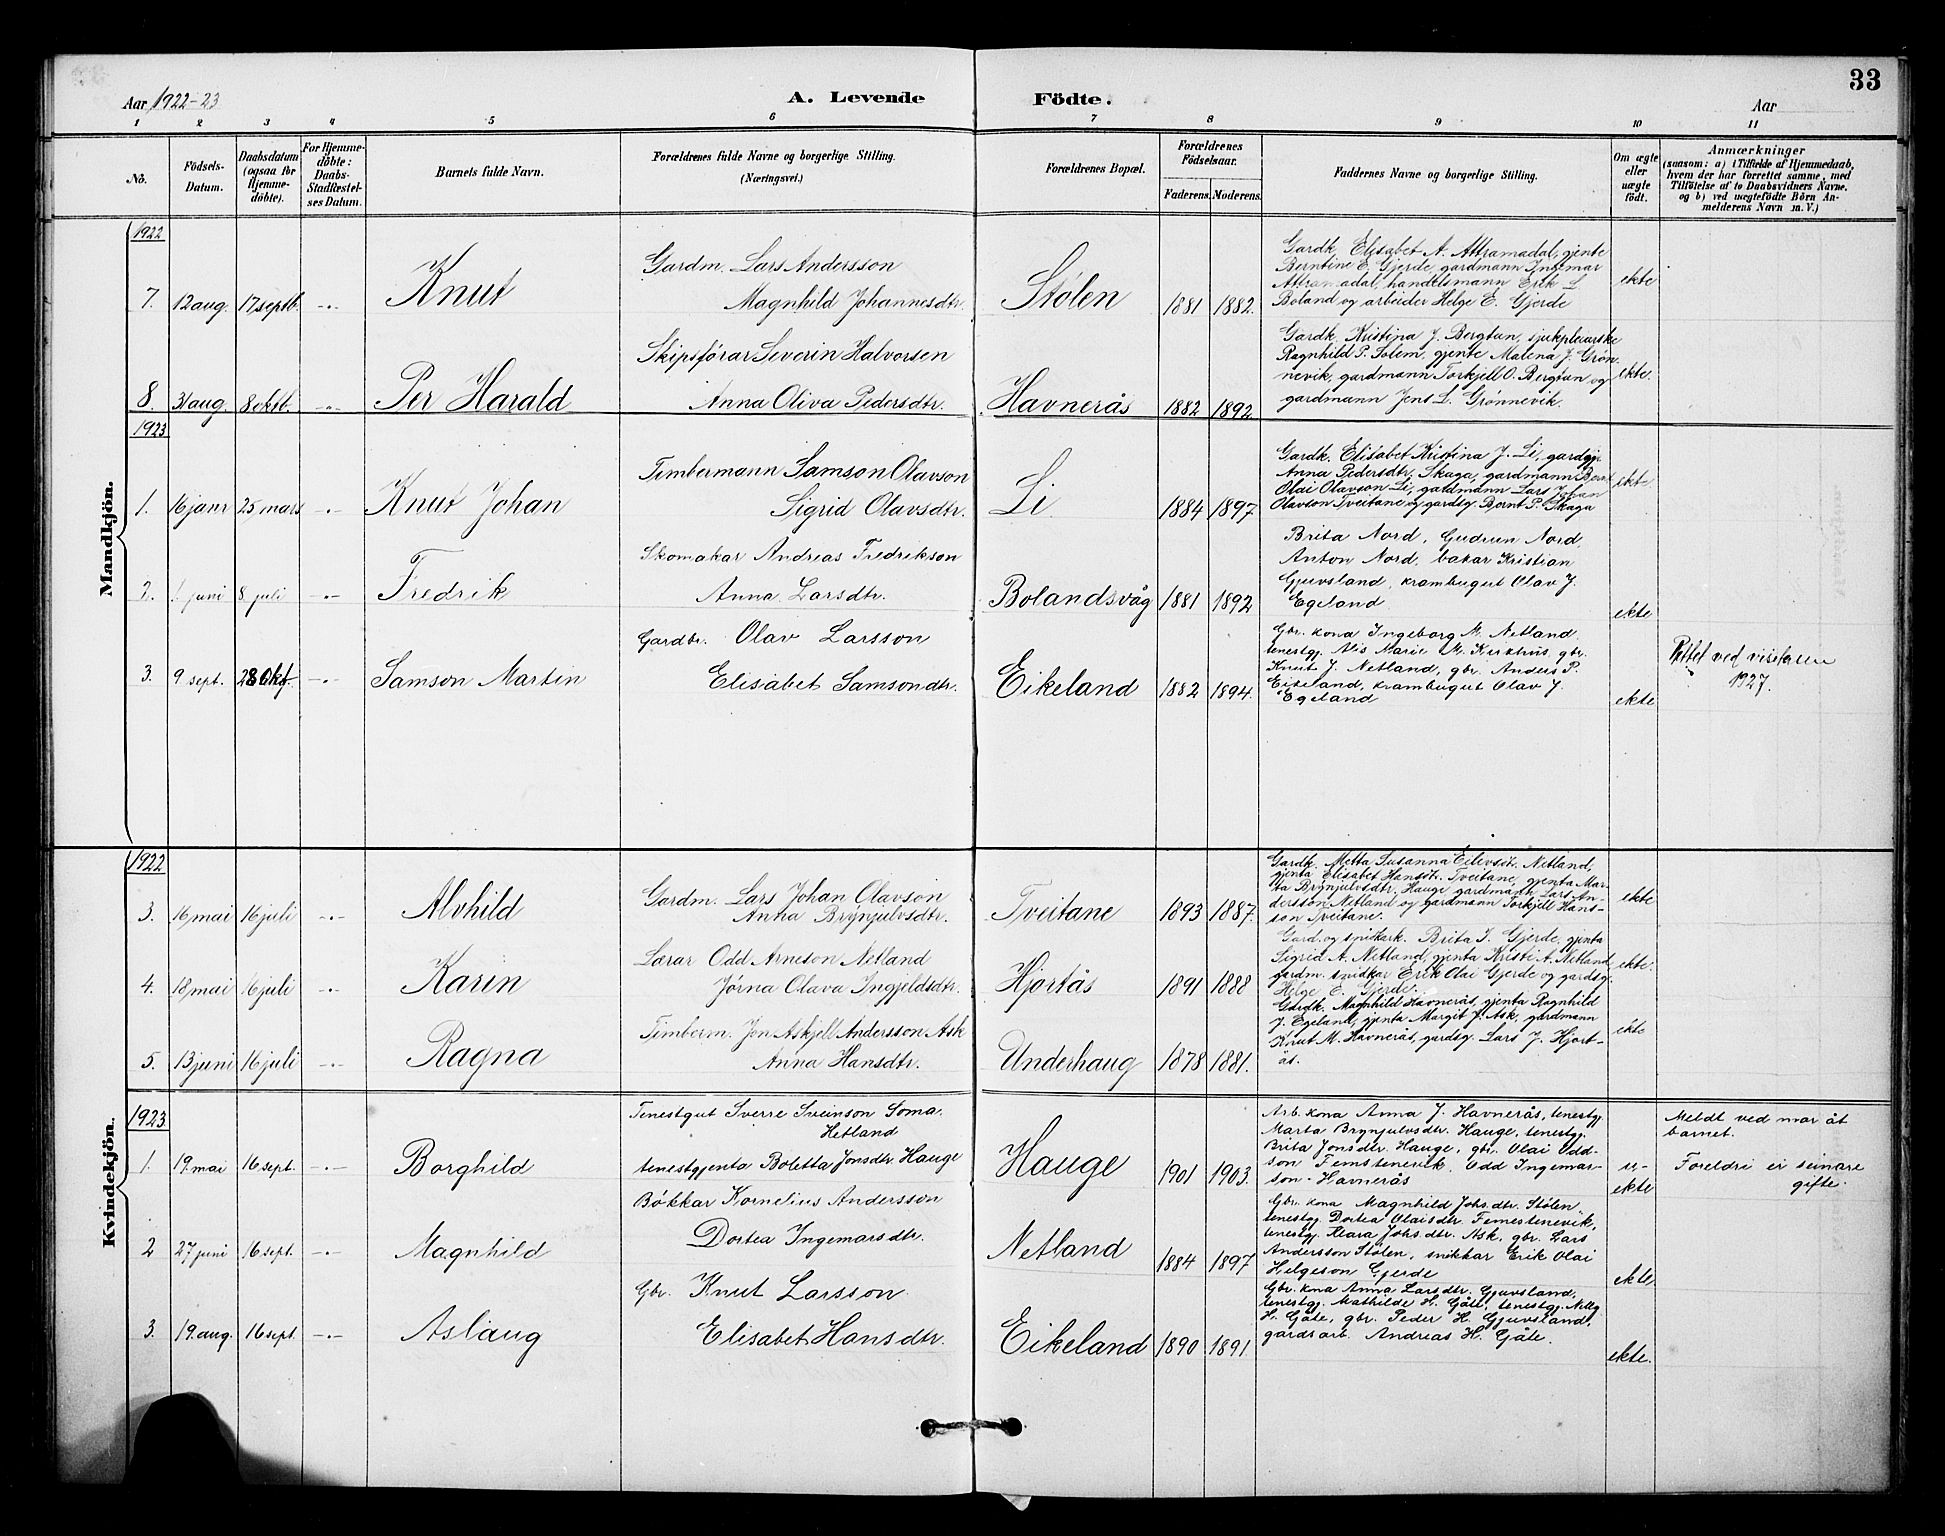 33
Aar 1922-23
A. Levende Födte.
Aar
1 2 3 4 5 6 7 8 9 10 11
No.
Födsels-Datum.
Daabsdatum (ogsaa for Hjemme-döbte).
For Hjemme-döbte: Daabs-Stadfæstel-ses Datum.
Barnets fulde Navn.
Forældrenes fulde Navne og borgerlige Stilling. (Næringsvei.)
Forældrenes Bopæl.
Forældrenes Födselsaar.
Faderens. Moderens.
Faddernes Navne og borgerlige Stilling.
Om ægte eller uægte födt.
Anmærkninger
(saasom: a) i Tilfælde af Hjemmedaab,
hvem der har forrettet samme, med
Tilföielse af to Daabsvidners Navne.
og b) ved uægtefödte Börn An-
melderens Navn m. V.)
Mandkjön.
1922
7. 12 aug. 17 septb. -"- Knut
Gardm. Lars Andersson
Magnhild Johannesdtr.
Stølen 1881 1882.
Gardk. Elisabet A. Attramadal, gjente
Berntine E. Gjerde, gardmann Ingemar
Attramadal, handelsmann Erik L
Boland og arbeider Helge E. Gjerde
ekte
8. 31 aug. 8 oktb. -"- Per Harald
Skipsførar Severin Halvorsen
Anna Oliva Pedersdtr.
Havnerås 1882 1892
Gardk. Kristina J. Bergtun, sjukpleiarske
Ragnhild P. Solem, gjente Malena J. Grøn-
nevik, gardmann Torkjell O. Bergtun og
gardmann Jens L. Grønnevik.
ekte.
1923
1. 16 janr 25 mars -"- Knut Johan
Timbermann Samson Olavson
Sigrid Olavsdtr.
Li 1884 1897
Gardk. Elisabet Kristina J. Li, gardgj.
Anna Pedersdtr. Skaga, gardmann Bernt
Olai Olavson Li, gardmann Lars Johan
Olavson Tveitane og gardsg. Bernt P. Skaga
ekte
2. 1 juni 8 juli -"- Fredrik
Skomakar Andreas Fredrikson
Anna Larsdtr.
Bolandsvåg 1881 1892
Brita Nord, Gudrun Nord,
Anton Nord, bakar Kristian
Gjuvsland, krambugut Olav J.
Egeland
ekte
3. 9 sept. 28 Okt. -"- Samson Martin
Gardbr. Olav Larsson
Elisabet Samsondtr.
Eikeland 1882 1894.
Gbr. kona Ingeborg M. Netland.
tenestgj. Alis Marie M. Kirkhus, gbr.
Knut J. Netland, gbr. Anders P.
Eikeland, krambugut Olav J.
Egeland
ekte
ved
1927.
Kvindekjön.
1922
3. 16 mai 16 juli -"- Alvhild
Gardm. Lars Johan Olavson
Anna Brynjulvsdtr.
Tveitane 1893 1887.
Gardk. Metta Susanna Eilevsdt. Netland,
gjenta Elisabet Hansdt. Tveitane, gjenta Mar-
ta Brynjulvsdtr. Hauge gardmann Lars An-
dersson Netland og gardmann Torkjell Hans-
son Tveitane.
ekte
4. 18 mai 16 juli -"- Karin
Lærar Odd Arneson Netland
Jørna Olava Ingjeldsdtr.
Hjortås 1891 1888
Gard. og snidkark. Brita I. Gjerde, gjenta
Sigrid A. Netland, gjenta Kristi A. Netland,
gardm. snidkar Erik Olai Gjerde og gardsg.
Helge E. Gjerde.
ekte.
5. 13 juni 16 juli -"- Ragna
Timberm. Jon Askjell Andersson Ask
Anna Hansdtr.
Underhaug 1878 1881.
Gardk. Magnhild Havnerås, gjenta Ragnhild
J. Egeland, gjenta Margit J. Ask, gardmann
Knut M. Havnerås, gardsg. Lars J. Hjort-
ås.
ekte
1923
1. 19. mai 16 sept. -"- Borghild
Tenestgut Sverre Sveinson Soma.
Hetland
tenestgjenta Boletta Jonsdtr. Hauge
Hauge 1901 1903.
Arb. kona Anna J. Havnerås, tenestgj.
Marta Brynjulvsdtr. Hauge, tenestgj.
Brita Jonsdtr. Hauge, gbr. Olai Odd-
son Femstenevik. Odd Ingemar-
son Havnerås
u-
ekte
Meldt ved mor åt
barnet.
Foreldri er seinare
gifte.
2 27 juni 16 sept. -"- Magnhild
Bøkkar Kornelius Andersson
Dortea Ingemarsdtr.
Netland 1884 1897
Gbr. kona Magnhild Johs.dtr. Stølen,
tenestgj. Dortea Olaisdtr. Femestenevik,
tenestgj. Klara Johs.dtr. Ask, gbr. Lars
Andersson Stølen, snikkar Erik Olai
Helgeson Gjerde
ekte.
3. 19. aug. 16 sept. -"- Aslaug
Gbr. Knut Larsson
Elisabet Hansdtr.
Eikeland 1890 1891.
Gbr. kona Anna Larsdtr. Gjuvsland,
tenestgj. Mathilde H. Gåte, tenestgj. Nelly
H. Gåte, gbr. Peder H. Gjuvsland,
gardsarb. Andreas H. Gåte.
ekte.